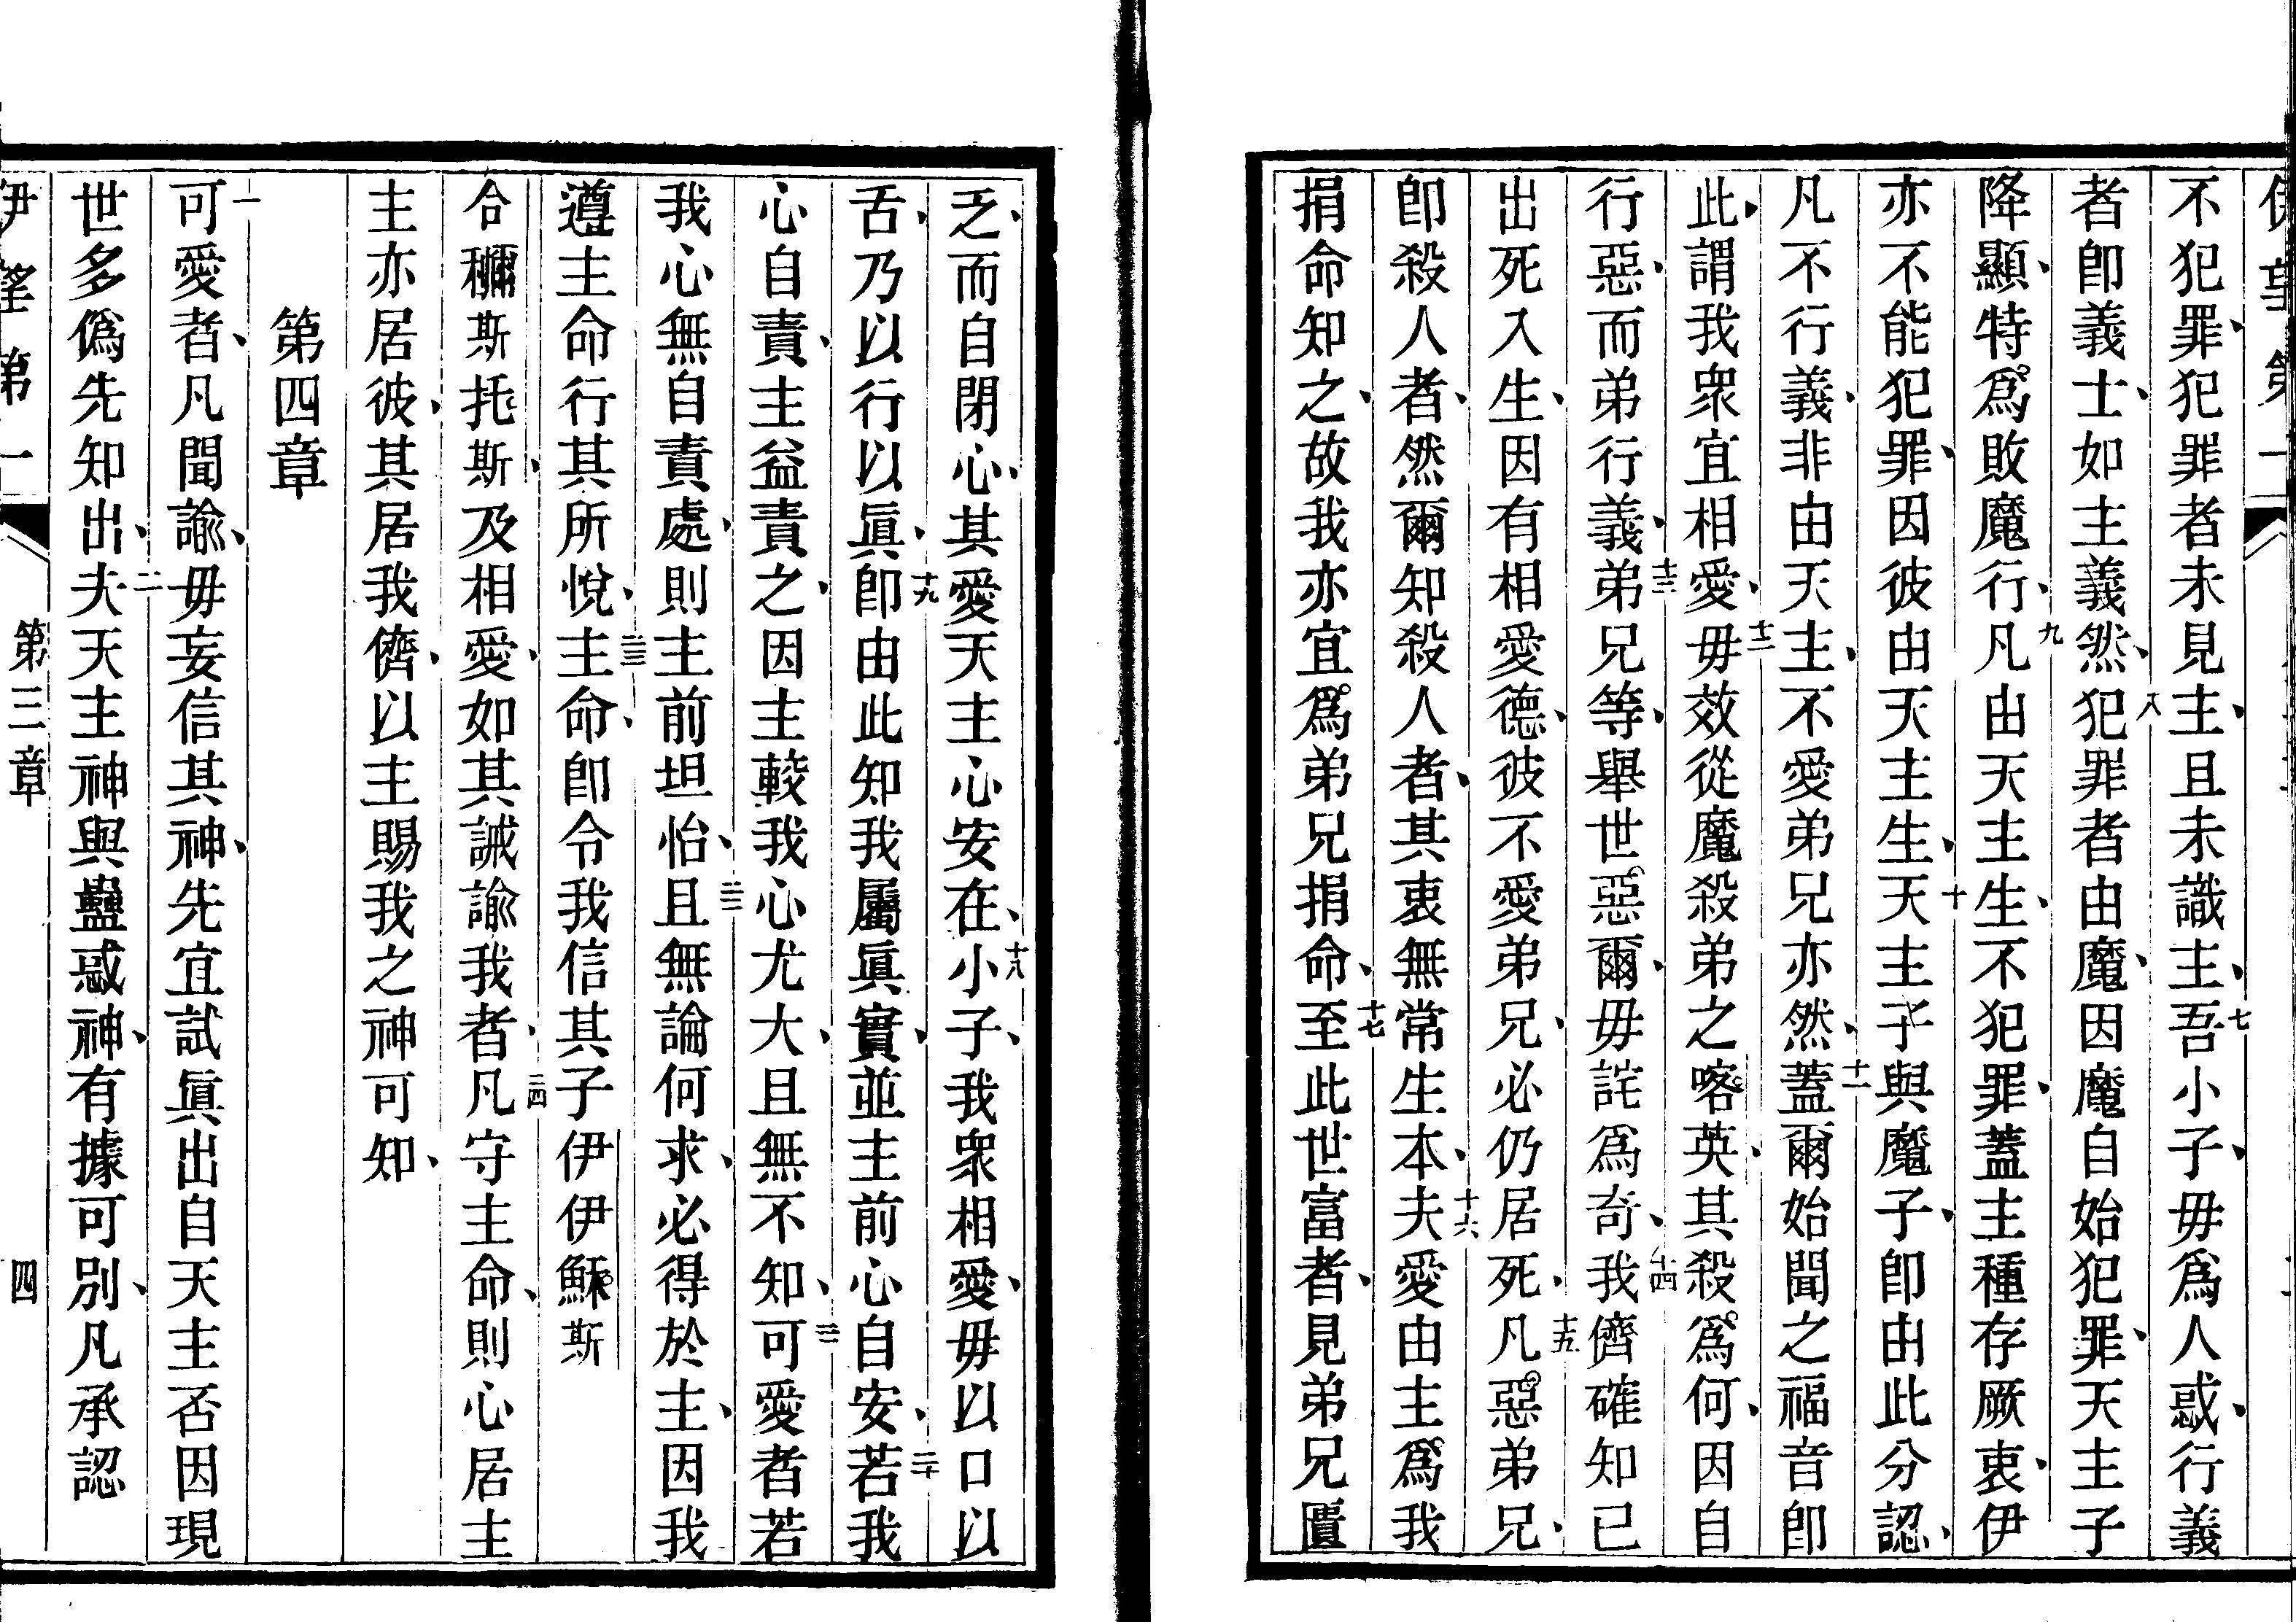 不犯罪、犯罪者未見主、且未識主、七吾小子、毋爲人惑、行義
者卽義士、如主義然、八犯罪者由魔、因魔自始犯罪、天主子
降顯、特爲敗魔行、九凡由天主生、不犯罪、蓋主種存厥衷、伊
亦不能犯罪、因彼由天主生、十天主子與魔子、卽由此分認、
凡不行義、非由天主、不愛弟兄亦然、十一蓋爾始聞之福音卽
此、謂我衆宜相愛、十二毋效從魔殺弟之喀英、其殺爲何、因自
行惡、而弟行義、十三弟兄等、舉世惡爾、毋詫爲奇、十四我儕確知已
出死入生、因有相愛德、彼不愛弟兄、必仍居死、十五凡惡弟兄、
卽殺人者、然爾知殺人者、其衷無常生本、十六夫愛由主爲我
捐命知之、故我亦宜爲弟兄捐命、十七至此世富者、見弟兄匱
乏、而自閉心、其愛天主心安在、十八小子、我衆相愛、毋以口以
舌、乃以行以眞、十九卽由此知我屬眞實、並主前心自安、二十若我
心自責、主益責之、因主較我心尤大、且無不知、二一可愛者若
我心無自責處、則主前坦怡、二二且無論何求、必得於主、因我
遵主命行其所悅、二三主命、卽令我信其子伊伊穌斯
合穪斯托斯、及相愛、如其誡諭我者、二四凡守主命、則心居主
主亦居彼、其居我儕、以主賜我之神可知、
第四章
一可愛者、凡聞諭、毋妄信其神、先宜試眞出自天主否因現
世多僞先知出、二夫天主神與蠱惑神、有據可別、凡承認
伊望第一
第三章
四